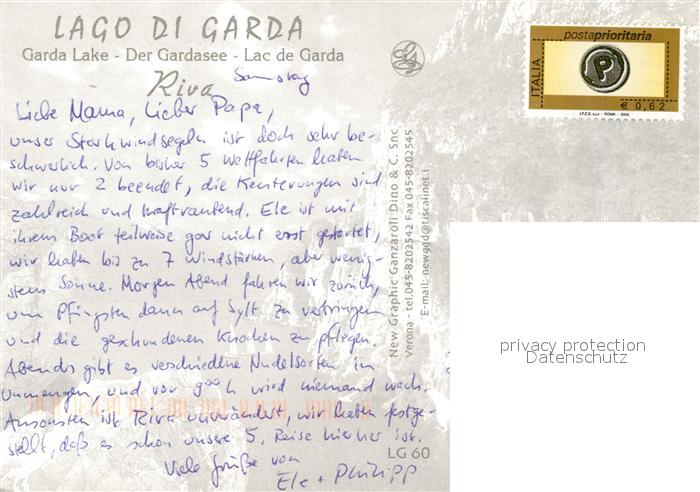 LAGO DI GARDA
Garda Lake - Der Gardasee - Lac de Garda
Riva
Samstag
Liebe Mama, Lieber Papa,
unser Starkwindsegeln ist doch sehr be-
schwerlich. Von bisher 5 Wettfahrten haben
wir nur 2 beendet, die Kenterungen sind
zahlreich und kraftraubend. Ele ist mit
ihrem Boot teilweise gar nicht erst gestartet,
wir haben bis zu 7 Windstärken, aber wenig-
stens Sonne. Morgen Abend fahren wir zurück,
um Pfingsten dann auf Sylt zu verbringen
und die geschundenen Knochen zu pflegen.
Abends gibt es verschiedene Nudelsorten in
Unmengen, und vor 9⁰⁰ h wird niemand wach.
Ansonsten ist Riva unverändert, wir haben festge-
stellt, daß es schon unsere 5. Reise hierher ist.
Viele Grüße von
Ele + Philipp
New Graphic Ganzaroli Dino & C. Snc
Verona - tel.045-8202542 Fax 045-8202545
E-mail: newggd@tiscalinet.i
LG 60
postaprioritaria
ITALIA
P
€ 0,62
I.P.Z.S. s.p.a. - ROMA - 2003
privacy protection
Datenschutz